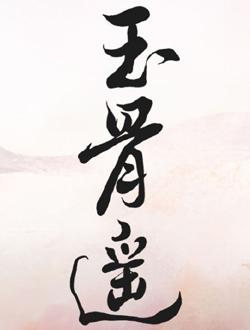 玉骨遥